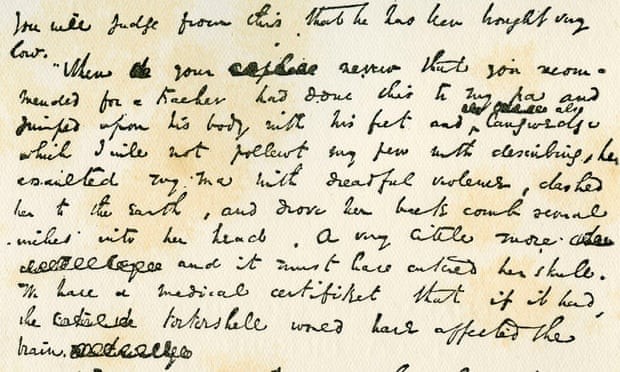 You will judge from this that he has been brought very
low.
"When your nevew that you recom-
mended for a teacher had done this to my pa and
also
jumped upon his body with his feet and langwedge
which I will not pollewt my pen with describing, he
assaulted my ma with dreadful violence, dashed
her to the earth, and drove her back comb several
inches into her head. A very little more
and it must have entered her skull.
We have a medical certifiket that if it had,
the tortershell would have affected the
brain.